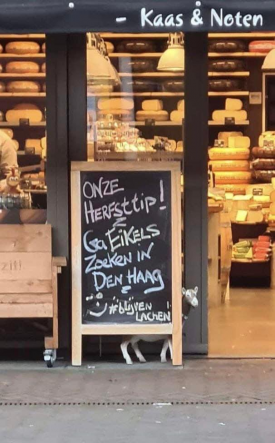 - Kaas & Noten
ONZE
HERFSTTIP!
Ga EiKELS
ZOEKEN IN
DEN HAAG
#BLIJVEN
LACHEN!